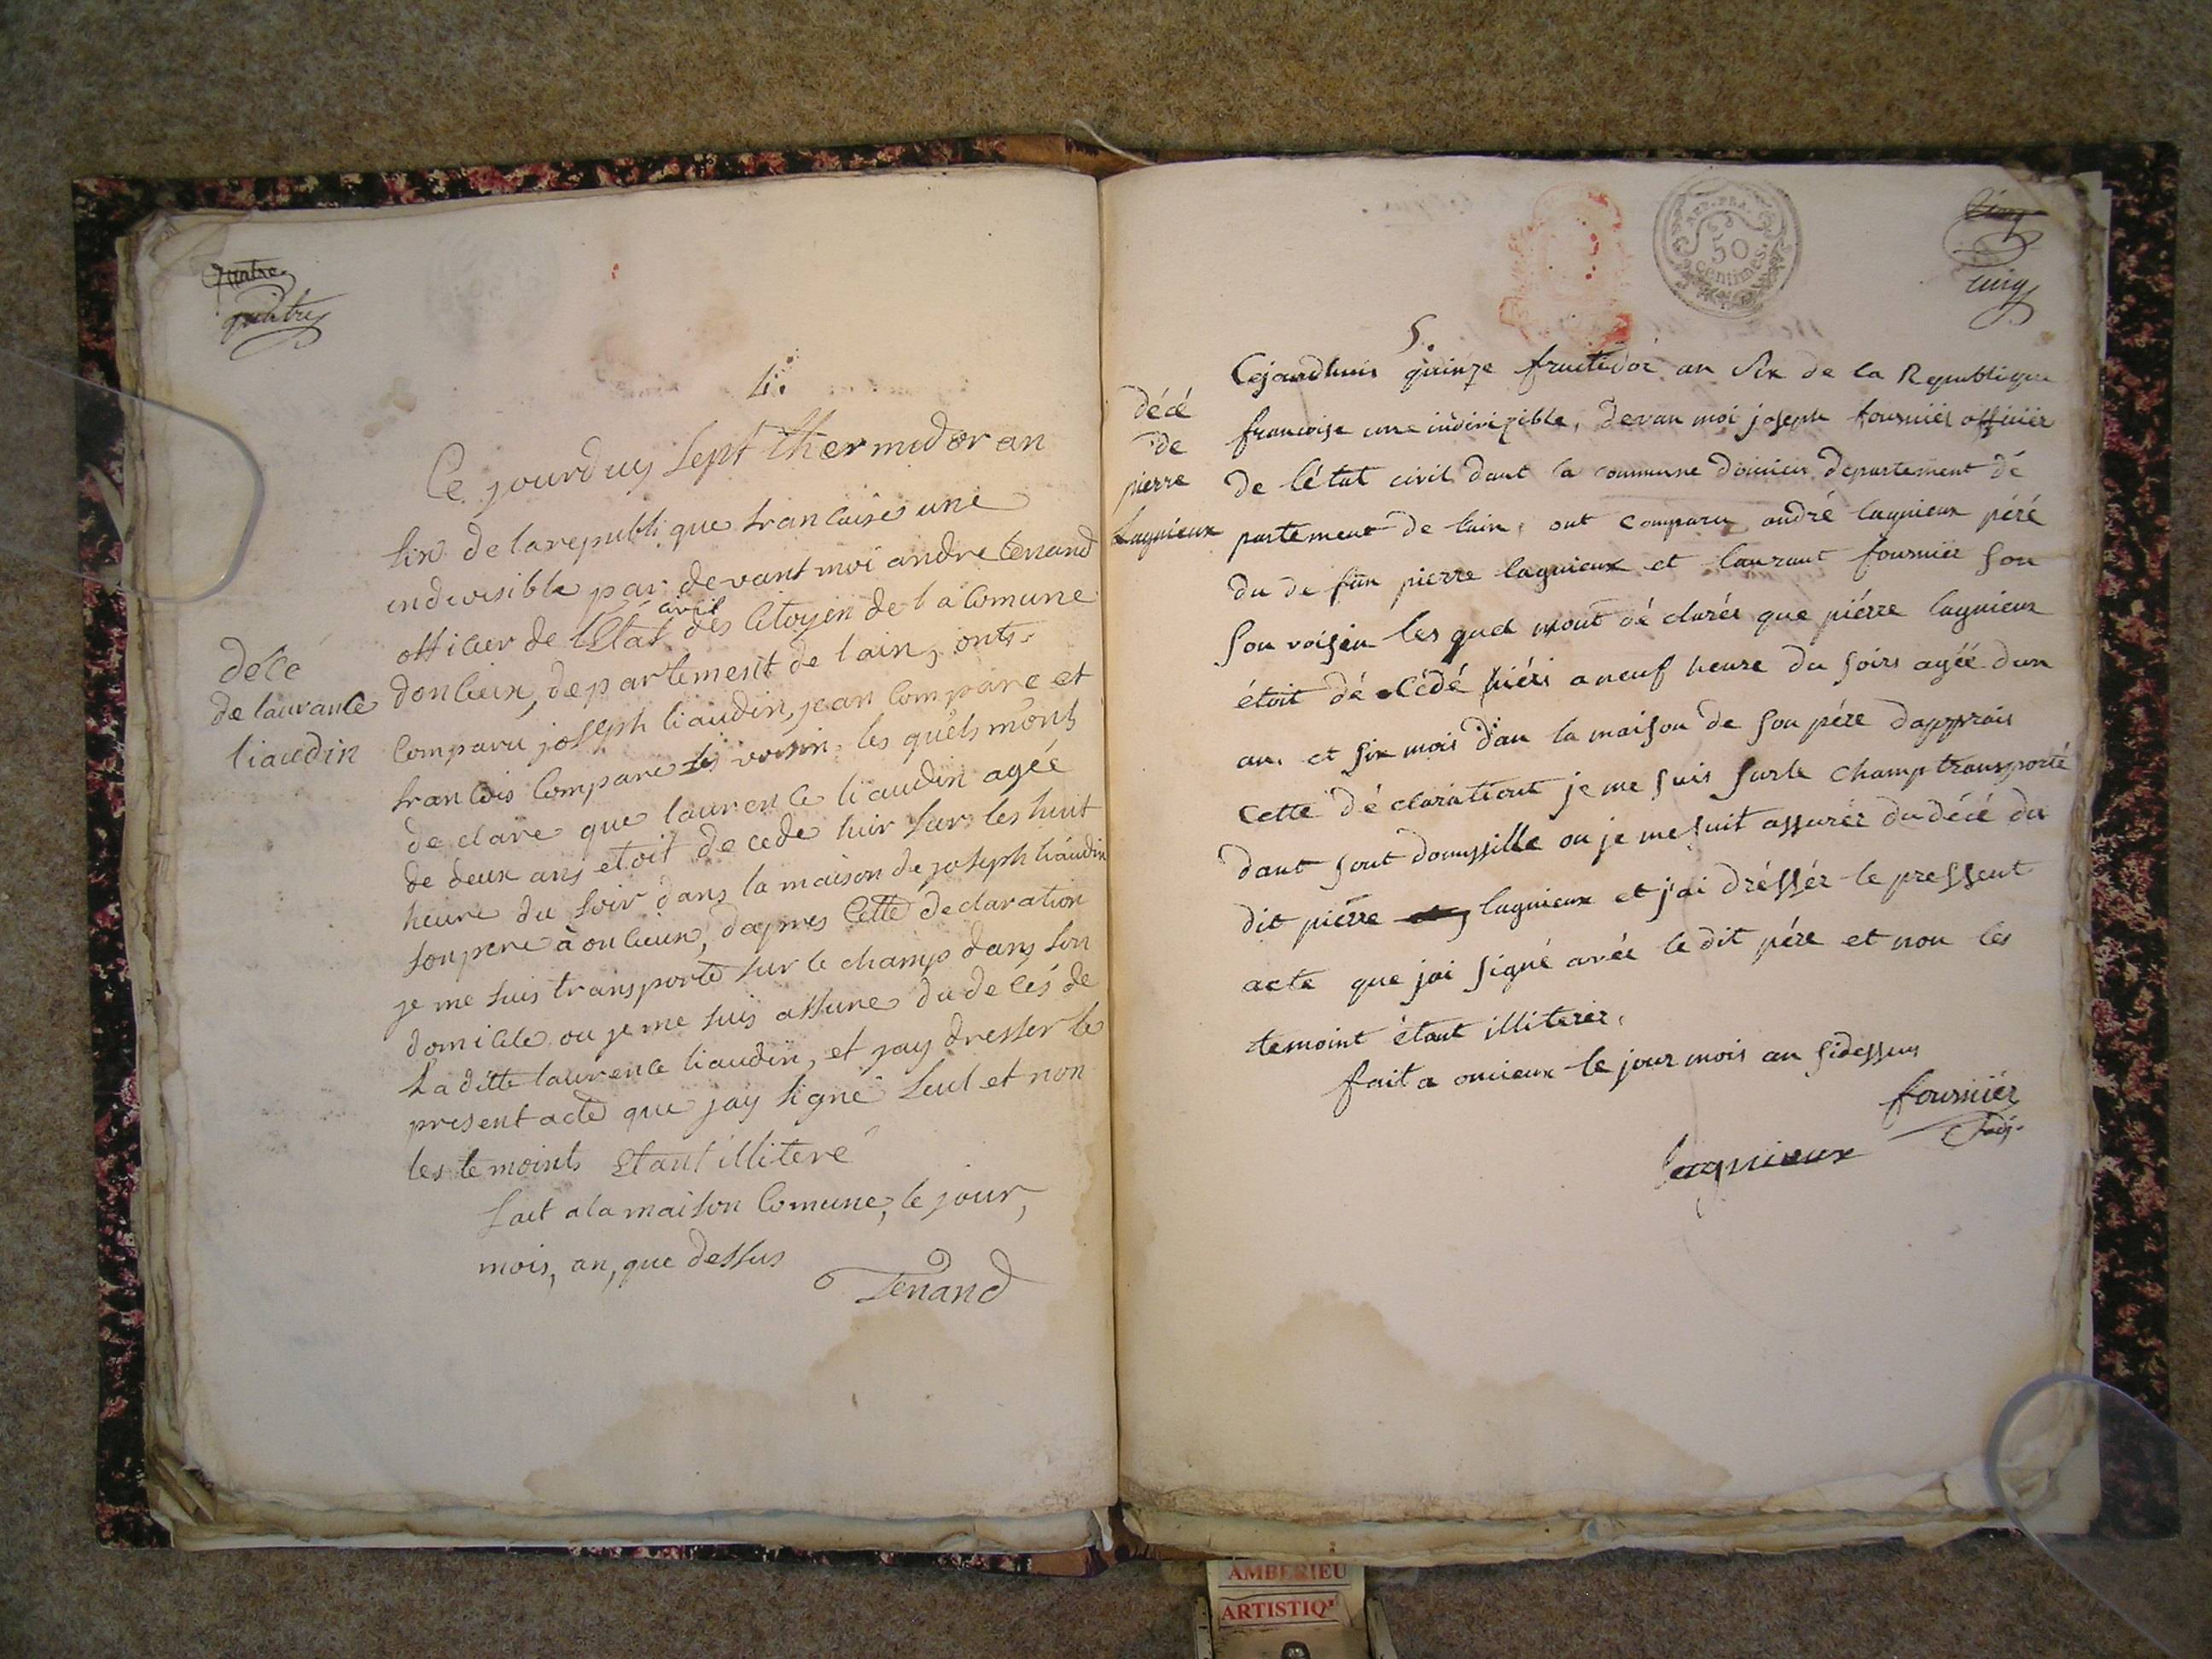 quatre
quatre
4.
Ce jourduy sept thermidor an
six de la republi que francaise une
indivisible par devant moi andre tenand
officier de l'Etat civil des Citoyen de la Comune
donlieux, departement de lain, onts
Comparu joseph liaudin, jean Compare et
francois Compare ses voisin, les quels monts
de clare que laurence liaudin agée
de deux ans etoit de cede hier sur les huit
heure du soir dans la maison de joseph liaudin
son pere à onlieux, dapres Cette declaration
je me suis transporté sur le champ dans son
domicile ou je me suis assure du decés de
la ditte laurence liaudin, et jay dresser le
present acte que jay signé seul et non
les temoints Etant illitere
fait a la maison Comune, le jour,
mois, an, que dessus
Tenand
décé
de laurance
liaudin
REP. FRA.
50
centimes
cinq
cinq
5.
Cejourdhuis quinze fructidor an six de la Republique
francoise une indivizible, devan moi joseph fournier officier
de létat civil dant la commune doncieu departement dé
partement de lain, ont comparu andré lagnieux péré
du de fün pierre lagnieux et laurant fournier son
son voisin les quel mont dé clarér que piérre lagnieux
étoit dé cédé hiérs a neuf heure du soirs agéé dun
an. et six mois dan la maison de son pére dapprais
cette dé clarationt je me suis surle champ transporté
dant sont domissille ou je me suit assurér du décé du
dit piérre lagnieux et j'ai dréssér le pressent
acte que jai signé avée le dit pére et non les
temoint étant illiterer.
fait a oncieux le jour mois an sidessus
fournier
adj.
lagnieux
décé
de
pierre
Lagnieux
AMBERIEU
ARTISTIQ